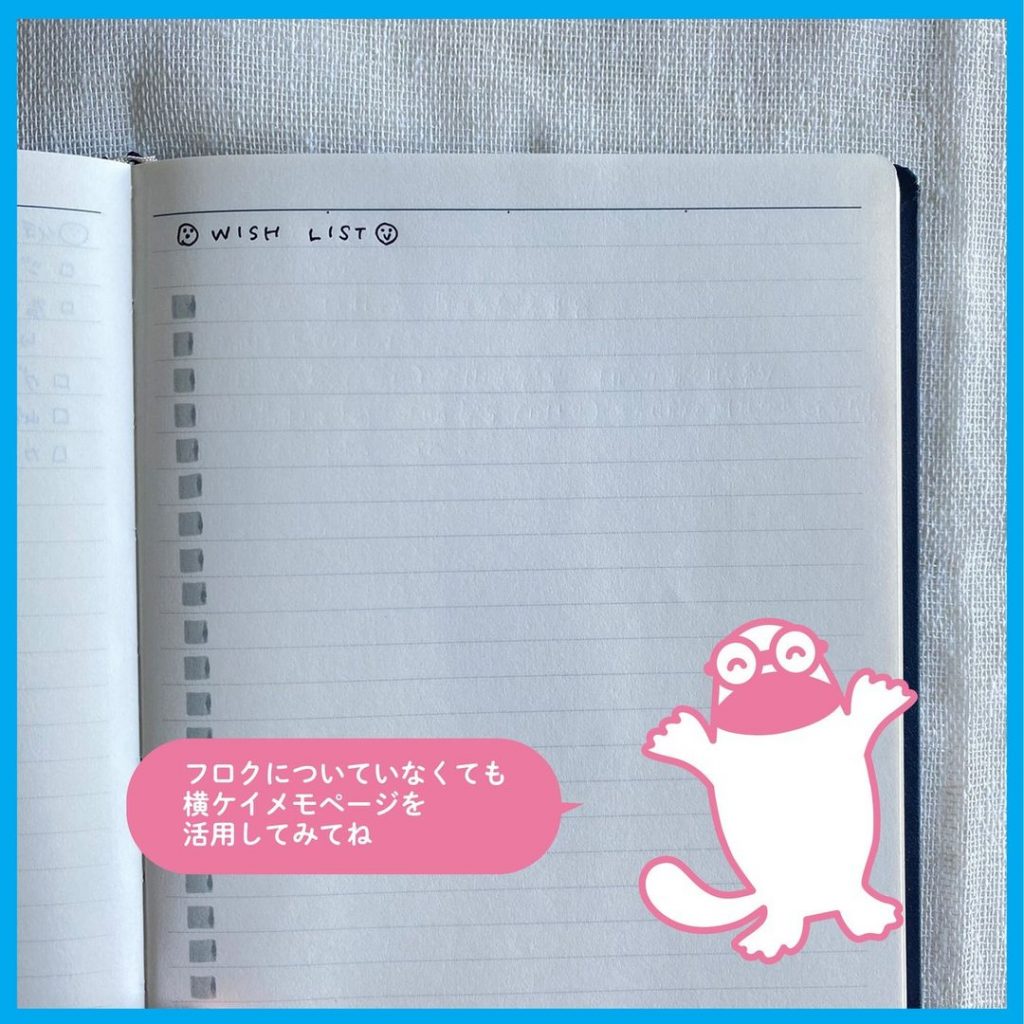 WISH LIST
フロクについていなくても
横ケイメモページを
活用してみてね